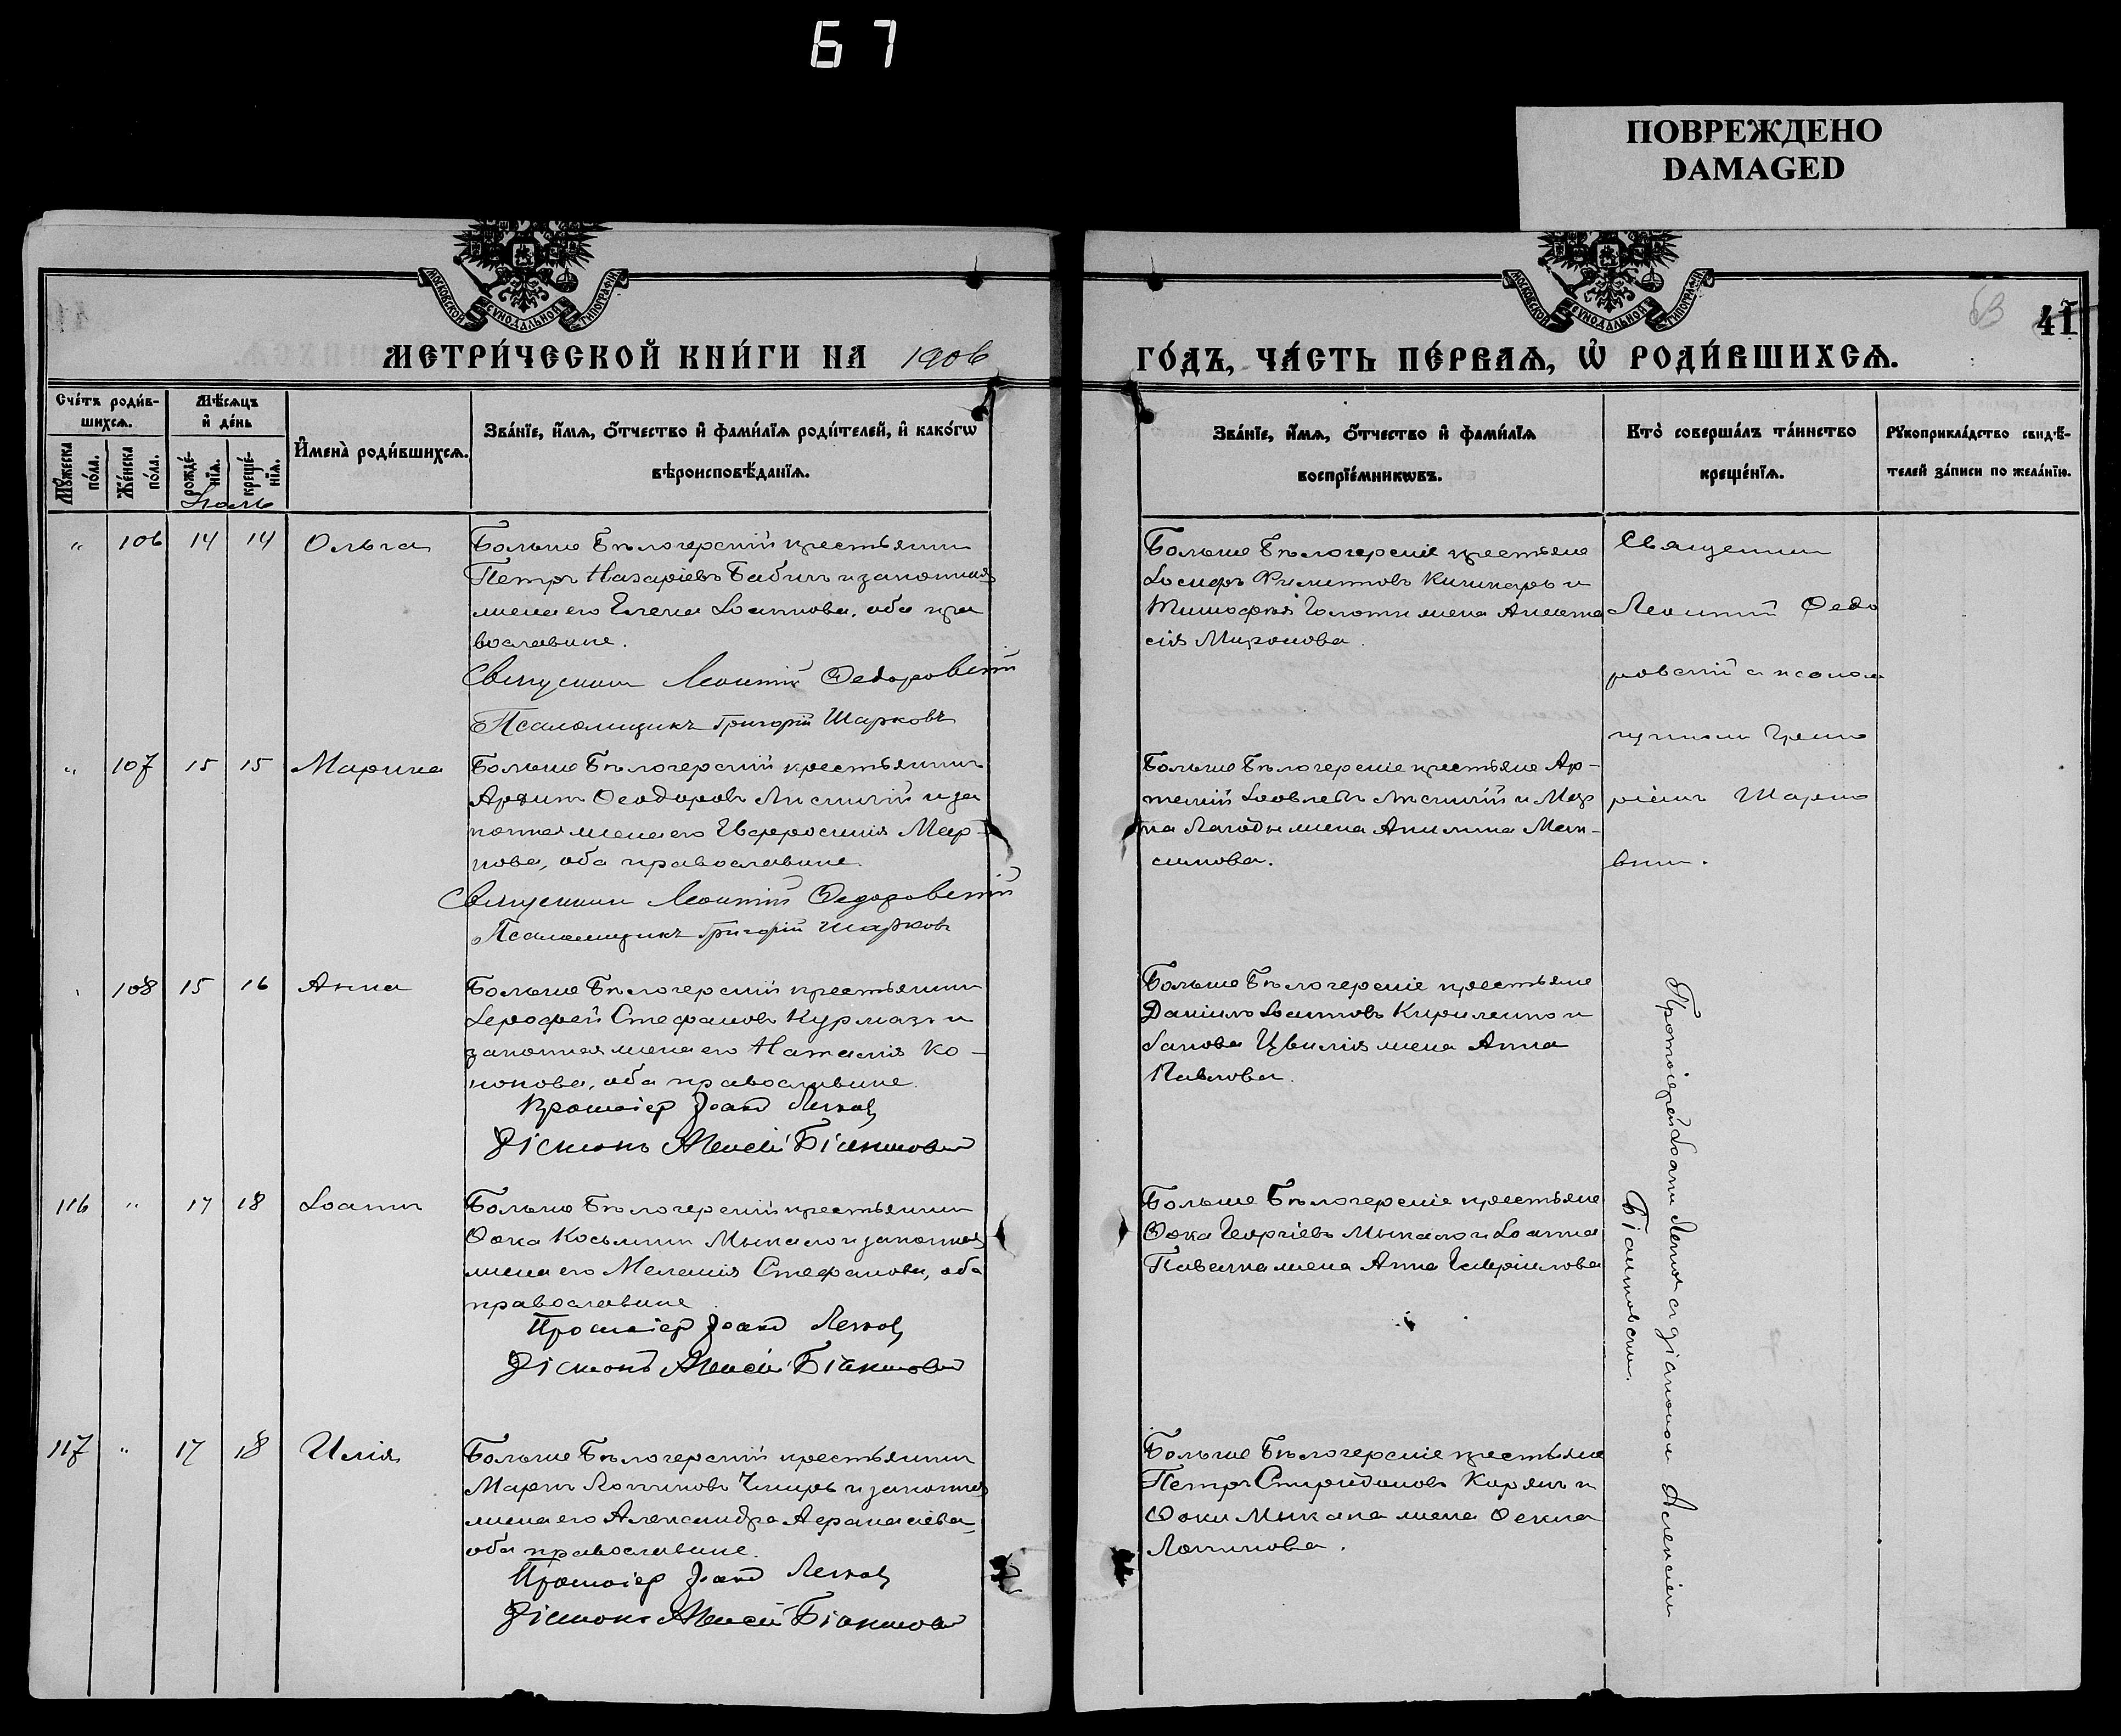 67
ПОВРЕЖДЕНО
DAMAGED
МОСКОВСКОЙ СѴНОДАЛЬНОЙ ТИПОГРАФІИ
МОСКОВСКОЙ СѴНОДАЛЬНОЙ ТИПОГРАФІИ
41
МЕТРИ́ЧЕСКОЙ КНИ́ГИ НА 1906
ГО́ДЪ, ЧА́СТЬ ПЕ́РВАѦ, Ѡ҆ РОДИ́ВШИХСѦ.
Сче́тъ роди́в-
шихсѧ.
Мꙋ́жеска по́ла.
Же́нска по́ла.
Мѣ́сѧцъ
и҆ де́нь
рожде́-
нїѧ.
креще́-
нїѧ.
И҆мена̀ роди́вшихсѧ.
Зва́нїе, и҆́мѧ, ѻ҆́тчество и҆ фами́лїѧ роди́телей, и҆ како́гѡ
вѣроисповѣ́данїѧ.
Зва́нїе, и҆́мѧ, ѻ҆́тчество и҆ фами́лїѧ
воспрїе́мникѡвъ.
Кто̀ соверша́лъ та́инство
креще́нїѧ.
Рꙋкоприкла́дство свидѣ́-
телей за́писи по жела́нїю.
" 106 14 14 Ольга
Больше Бѣлозерскій крестьянинъ
Петръ Назаріевъ Бабичъ и законная
жена его Елена Іоаннова, оба пра
вославные.
Священникъ Леонтій Федоровскій
Псаломщикъ Григорій Шарковъ
Больше Бѣлозерскіе крестьяне
Іосифъ
жена Анаста
сія Миронова.
Священник
Леонтій Федо
ровскій съ псалом
щикомъ Григо
ріемъ Шарко
вым.
" 107 15 15 Марина
Больше Бѣлозерскій крестьянинъ
Ѳеодоровъ Лисичій и за
конная жена его Евфросинія Мар-
кова, оба православные.
Священникъ Леонтій Федоровскій
Псаломщикъ Григорій Шарковъ
Больше Бѣлозерскіе крестьяне Ар-
темій Іовлевъ Лисичій и Мар
ка Лагоды жена Акилина Мак-
симова.
108 15 16 Анна
Больше Бѣлозерскій крестьянинъ
Іерофей Стефановъ Курмазъ и
законная жена его Наталія Ко-
нонова, оба православные.
Протоіер Іоанн
Діаконъ Алексій
Больше Бѣлозерскіе крестьяне
Даніилъ Іоанновъ Кириленко и
жена Анна
Павлова.
Протоіерей Іоанн съ діаконом Алексіем
116 " 17 18 Іоаннъ
Больше Бѣлозерскій крестьянинъ
Фока Косьмин Мыкало и законная
жена его Меланія Стефанова, оба
православные
Протоіер Іоанн
Діаконъ Алексій
Больше Бѣлозерскіе крестьяне
Фока Георгіевъ Мыкало и Іоанна
жена Анна Гавріилова
117 " 17 18 Илія
Больше Бѣлозерскій крестьянинъ
Маркъ Логиновъ и законная
жена его Александра Аѳанасіева,
оба православные.
Протоіер Іоанн
Діаконъ Алексій
Больше Бѣлозерскіе крестьяне
Петръ Спиридоновъ и
Фоки Мыкала жена Ѳекла
Логинова.